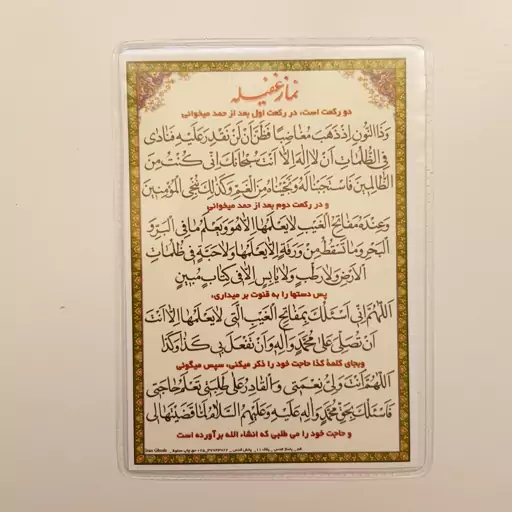 نماز غفیله
دو رکعت است، در رکعت اول بعد از حمد میخوانی
وَذَا النُّونِ اِذْ ذَهَبَ مُغَاضِبًا فَظَنَّ اَنْ لَنْ نَقْدِرَ عَلَيْهِ فَنَادٰى
فِى الظُّلُمَاتِ اَنْ لَا اِلٰهَ اِلَّا اَنْتَ سُبْحَانَكَ اِنّى كُنْتُ مِنَ
الظَّالِمينَ فَاسْتَجَبْنَا لَهُ وَنَجَّيْنَاهُ مِنَ الْغَمِّ وَكَذٰلِكَ نُنْجِى الْمُؤْمِنينَ
و در رکعت دوم بعد از حمد میخوانی
وَعِنْدَهُ مَفَاتِحُ الْغَيْبِ لَا يَعْلَمُهَا اِلَّا هُوَ وَيَعْلَمُ مَا فِى الْبَرِّ وَ
الْبَحْرِ وَمَا تَسْقُطُ مِنْ وَرَقَةٍ اِلَّا يَعْلَمُهَا وَلَا حَبَّةٍ فى ظُلُمَاتِ
الْاَرْضِ وَلَا رَطْبٍ وَلَا يَابِسٍ اِلَّا فى كِتَابٍ مُبينٍ
پس دستها را به قنوت بر میداری،
اَللّٰهُمَّ اِنّى اَسْئَلُكَ بِمَفَاتِحِ الْغَيْبِ الَّتى لَا يَعْلَمُهَا اِلَّا اَنْتَ
اَنْ تُصَلِّىَ عَلٰى مُحَمَّدٍ وَآلِهِ وَاَنْ تَفْعَلَ بى كَذَا وَكَذَا
وبجای کلمهٔ کذا حاجت خود را ذکر میکنی، سپس میگوئی
اَللّٰهُمَّ اَنْتَ وَلِىُّ نِعْمَتى وَالْقَادِرُ عَلٰى طَلِبَتى تَعْلَمُ حَاجَتى
فَاَسْئَلُكَ بِحَقِّ مُحَمَّدٍ وَآلِهِ عَلَيْهِ وَعَلَيْهِمُ السَّلَامُ لَمَّا قَضَيْتَهَا لى
و حاجت خود را می طلبی که انشاء الله برآورده است